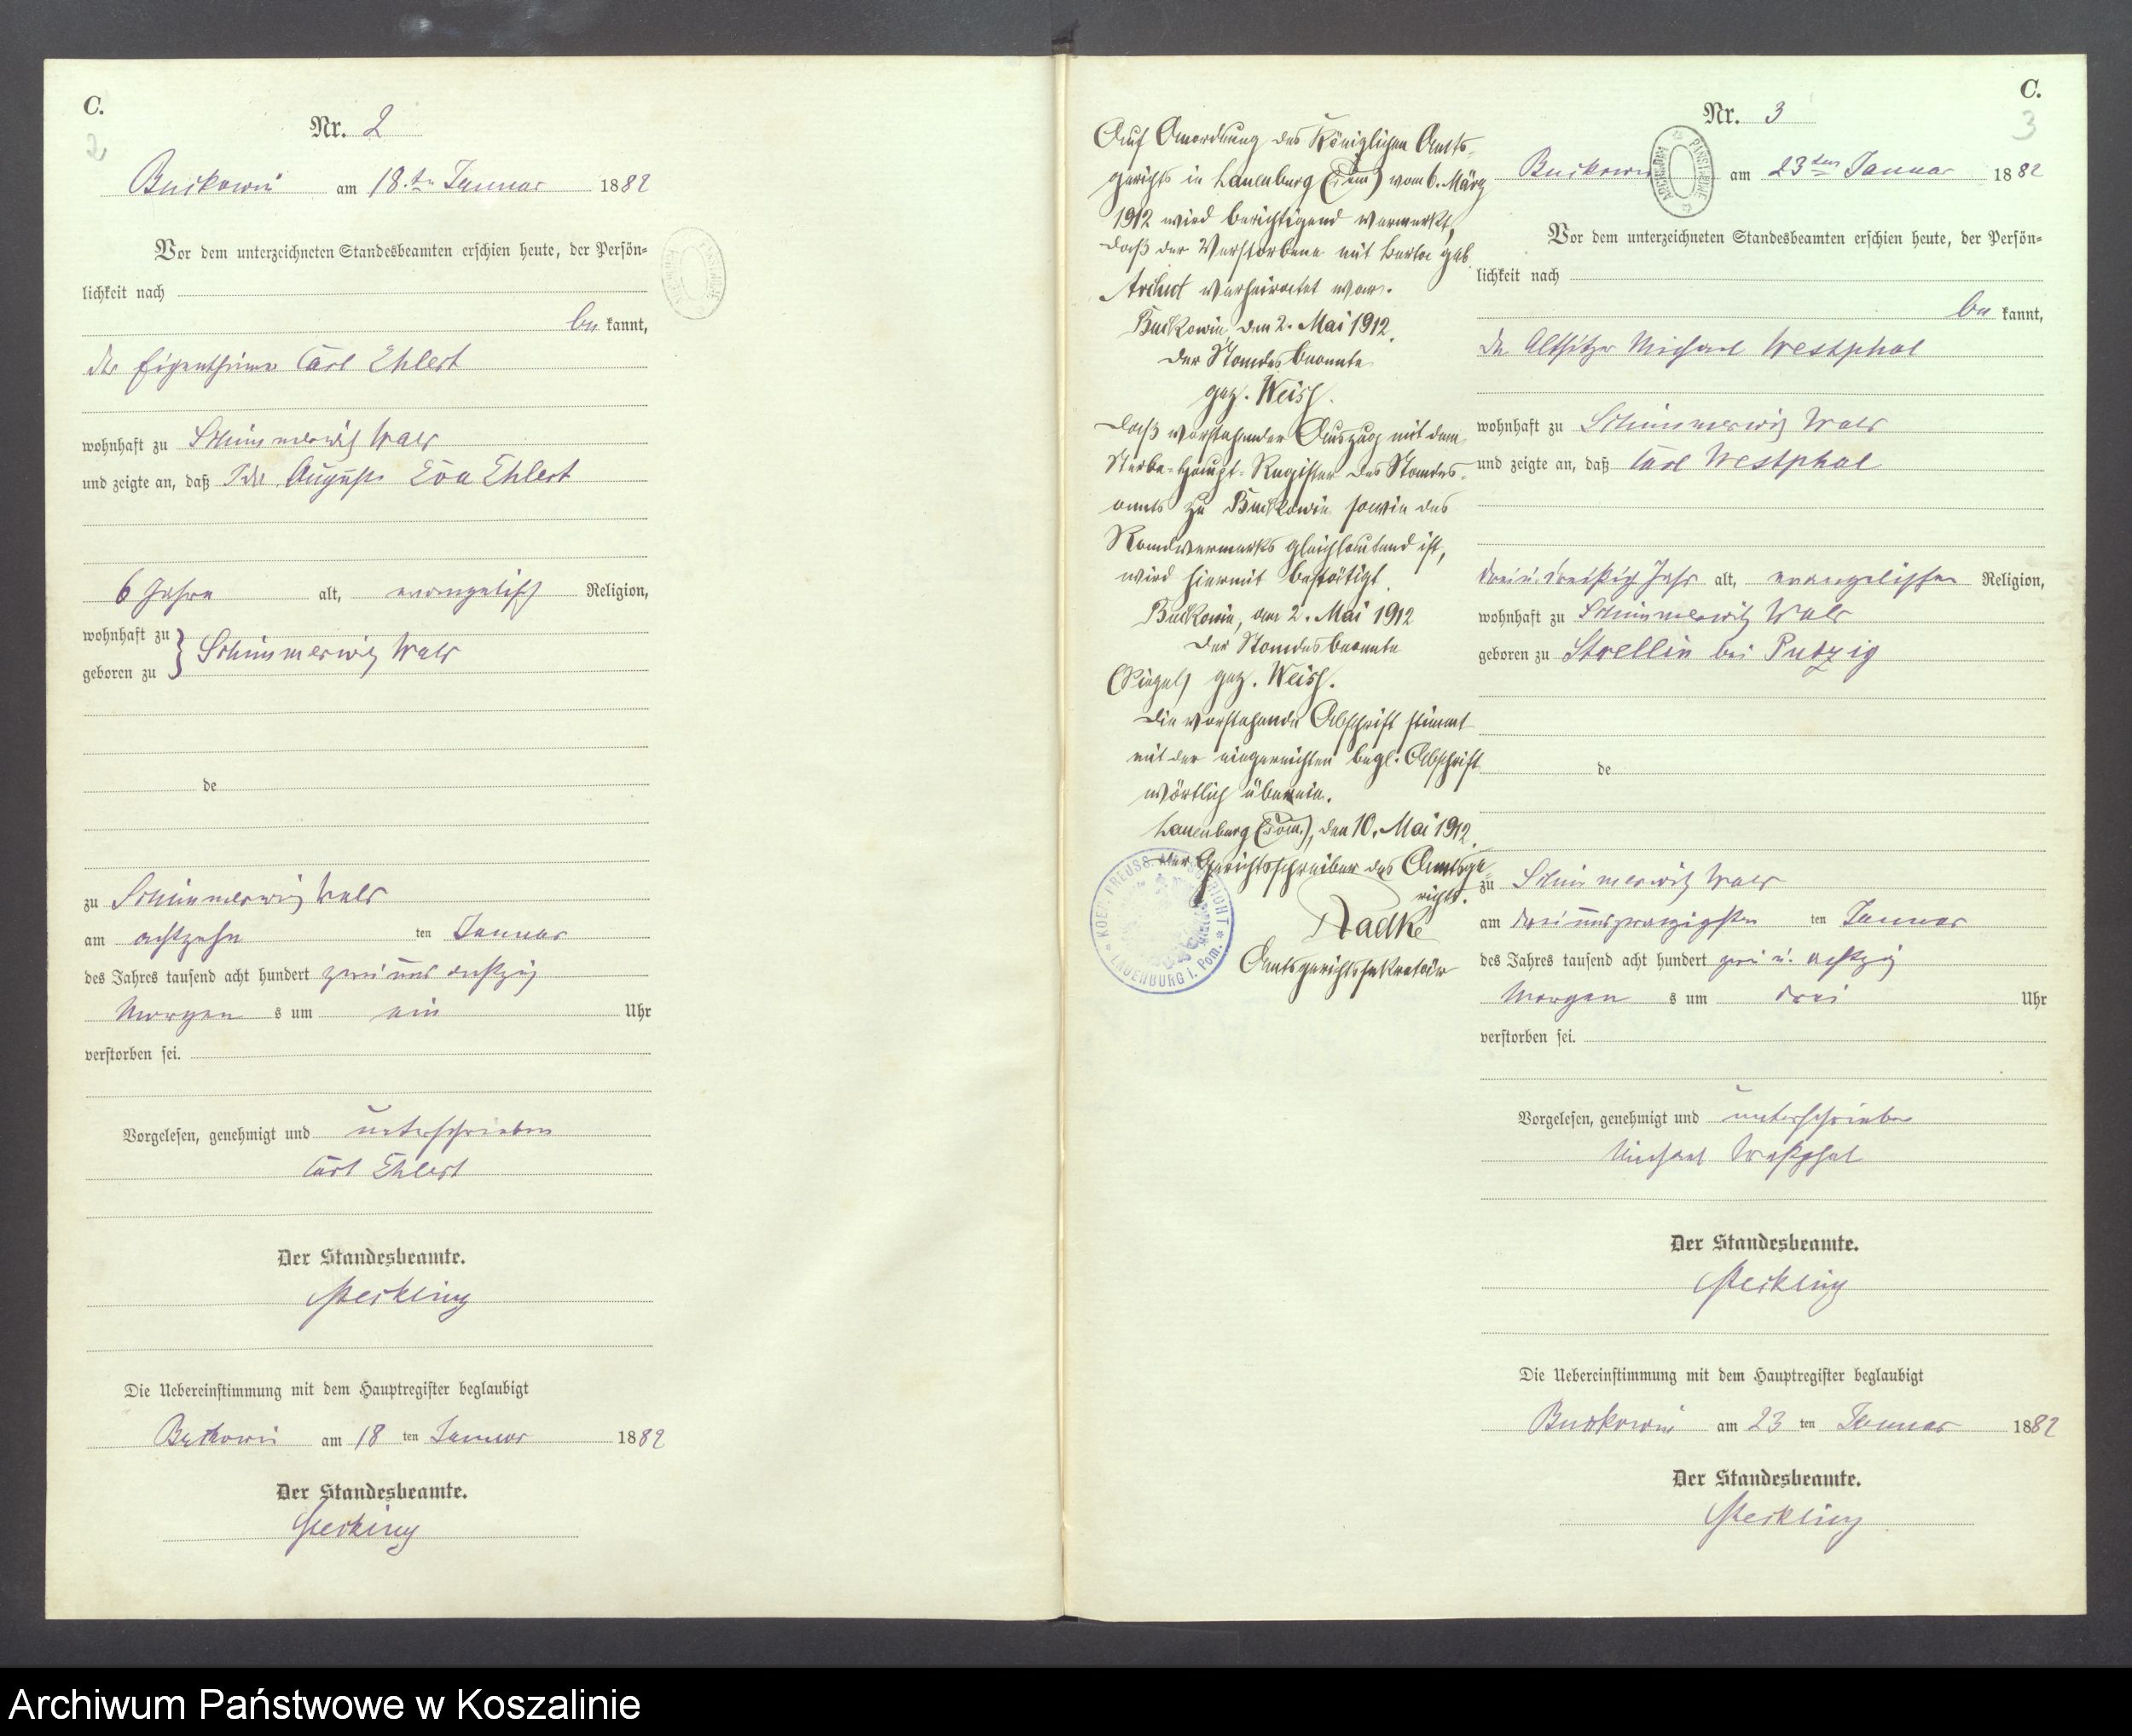 C.
2
Nr. 2
Buckowin am 18.ten Januar 1882
Vor dem unterzeichneten Standesbeamten erschien heute, der Persön-
lichkeit nach
be kannt,
der Eigenthümer Carl Ehlert
wohnhaft zu Schimmerwitz Wald
und zeigte an, daß Eva Ehlert
6 Jahre alt, evangelisch Religion,
wohnhaft zu
geboren zu } Schimmerwitz Wald
de
zu Schimmerwitz Wald
am achtzehn ten Januar
des Jahres tausend acht hundert zwei und achtzig
Morgen s um ein Uhr
verstorben sei.
Vorgelesen, genehmigt und unterschrieben
Carl Ehlert
Der Standesbeamte.
Die Uebereinstimmung mit dem Hauptregister beglaubigt
Buckowin am 18 ten Januar 1882
Der Standesbeamte.
Auf Anordnung des Königlichen Amts-
gerichts in Lauenburg (Pom) vom 6. März
1912 wird berichtigend vermerkt,
daß der Verstorbene mit Berta geb.
verheiratet war.
Buckowin, den 2. Mai 1912.
Der Standesbeamte
gez. Weiß.
Daß vorstehender Auszug mit dem
Sterbe-Haupt-Register des Standes-
amts zu Buckowin sowie des
Randvermerks gleichlautend ist,
wird hiermit bestätigt.
Buckowin, am 2. Mai 1912
Der Standesbeamte
(Siegel) gez. Weiß.
Die vorstehende Abschrift stimmt
mit der eingereichten begl. Abschrift
wörtlich überein.
Lauenburg (Pom.), den 10. Mai 1912.
Der Gerichtsschreiber des Amtsge-
richts.
Radke
Amtsgerichtssekretär
KOEN. PREUSS. AMTSGERICHT * LAUENBURG i. Pom. *
C.
3
Nr. 3
Buckowin am 23ten Januar 1882
Vor dem unterzeichneten Standesbeamten erschien heute, der Persön-
lichkeit nach
be kannt,
der Altsitzer Michael Westphal
wohnhaft zu Schimmerwitz Wald
und zeigte an, daß Carl Westphal
drei u. dreißig Jahr alt, evangelischer Religion,
wohnhaft zu Schimmerwitz Wald
geboren zu Strellin bei Putzig
de
zu Schimmerwitz Wald
am dreiundzwanzigsten ten Januar
des Jahres tausend acht hundert zwei u. achtzig
Morgen s um drei Uhr
verstorben sei.
Vorgelesen, genehmigt und unterschrieben
Michael Westphal
Der Standesbeamte.
Die Uebereinstimmung mit dem Hauptregister beglaubigt
Buckowin am 23 ten Januar 1882
Der Standesbeamte.
Archiwum Państwowe w Koszalinie